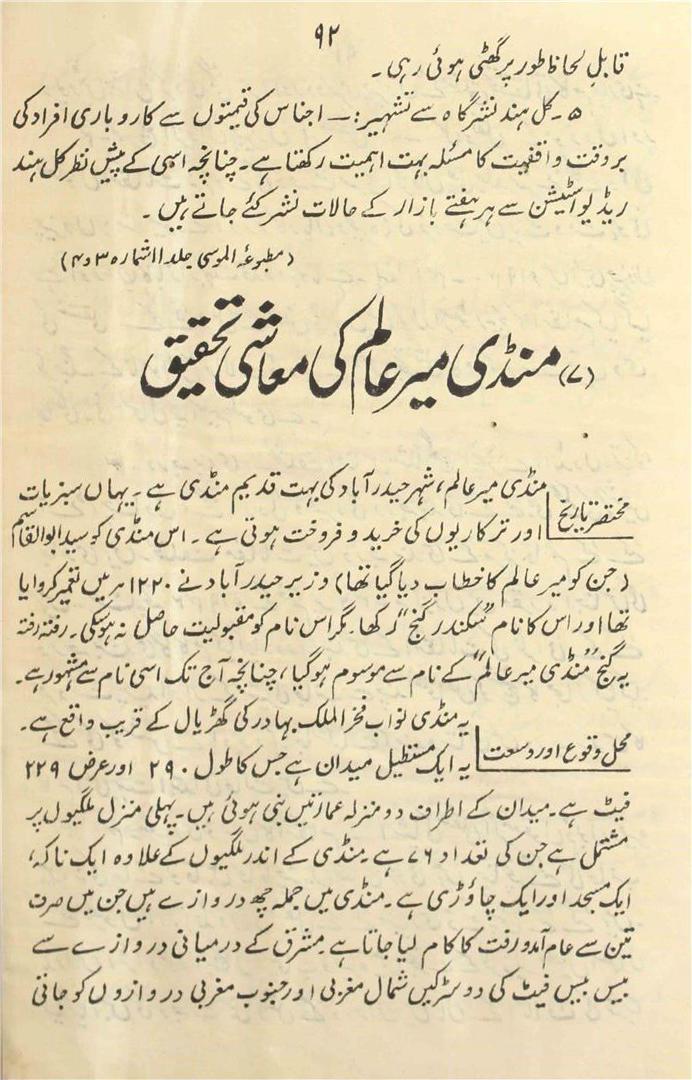 ۹۲
قابلِ لحاظ طور پر گھٹی ہوئی رہی۔
۵۔ کل ہند نشر گاہ سے تشہیر:۔ اجناس کی قیمتوں سے کاروباری افراد کی
بروقت واقفیت کا مسئلہ بہت اہمیت رکھتا ہے۔ چنانچہ اسی کے پیش نظر کل ہند
ریڈیو اسٹیشن سے ہر ہفتے بازار کے حالات نشر کئے جاتے ہیں۔
(مطبوعہ الموسی جلد ۱۱ شمارہ ۳ و ۴)
(۷) منڈی میر عالم کی معاشی تحقیق
مختصر تاریخ
منڈی میر عالم، شہر حیدرآباد کی بہت قدیم منڈی ہے۔ یہاں سبزیات
اور ترکاریوں کی خرید و فروخت ہوتی ہے۔ اس منڈی کو سید ابوالقاسم
(جن کو میر عالم کا خطاب دیا گیا تھا) وزیر حیدرآباد نے ۱۲۲۰ھ میں تعمیر کروایا
تھا اور اس کا نام "سکندر گنج" رکھا۔ مگر اس نام کو مقبولیت حاصل نہ ہوسکی۔ رفتہ رفتہ
یہ گنج "منڈی میر عالم" کے نام سے موسوم ہوگیا، چنانچہ آج تک اسی نام سے مشہور ہے۔
محل وقوع اور وسعت
یہ منڈی نواب فخر الملک بہادر کی گھڑیال کے قریب واقع ہے۔
یہ ایک مستطیل میدان ہے جس کا طول ۲۹۰ اور عرض ۲۲۹
فیٹ ہے۔ میدان کے اطراف دو منزلہ عمارتیں بنی ہوئی ہیں۔ پہلی منزل ملگیوں پر
مشتمل ہے جن کی تعداد ۷۶ ہے۔ منڈی کے اندر ملگیوں کے علاوہ ایک ناکہ،
ایک مسجد اور ایک چاؤڑی ہے۔ منڈی میں جملہ چھ دروازے ہیں جن میں صرف
تین سے عام آمد و رفت کا کام لیا جاتا ہے۔ مشرق کے درمیانی دروازے سے
بیس بیس فیٹ کی دو سڑکیں شمال مغربی اور جنوب مغربی دروازوں کو جاتی